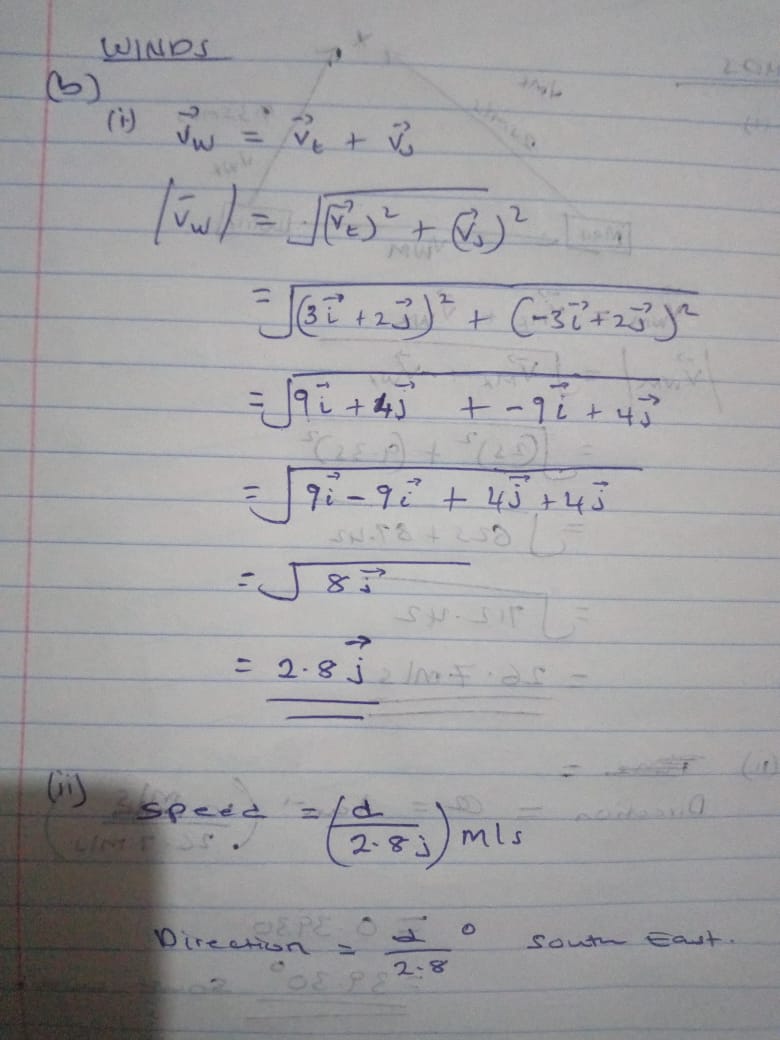 WINDS
(b)
(i) v⃗w = v⃗t + v⃗s
|v̄w| = √(v⃗t)² + (v⃗s)²
= √(3i⃗ + 2j⃗)² + (-3i⃗ + 2j⃗)²
= √9i⃗ + 4j⃗ + -9i⃗ + 4j⃗
= √9i⃗ - 9i⃗ + 4j⃗ + 4j⃗
= √8j⃗
= 2.8j⃗
(ii) Speed = (d/2.8j) m/s
Direction = d/2.8 ° South East.